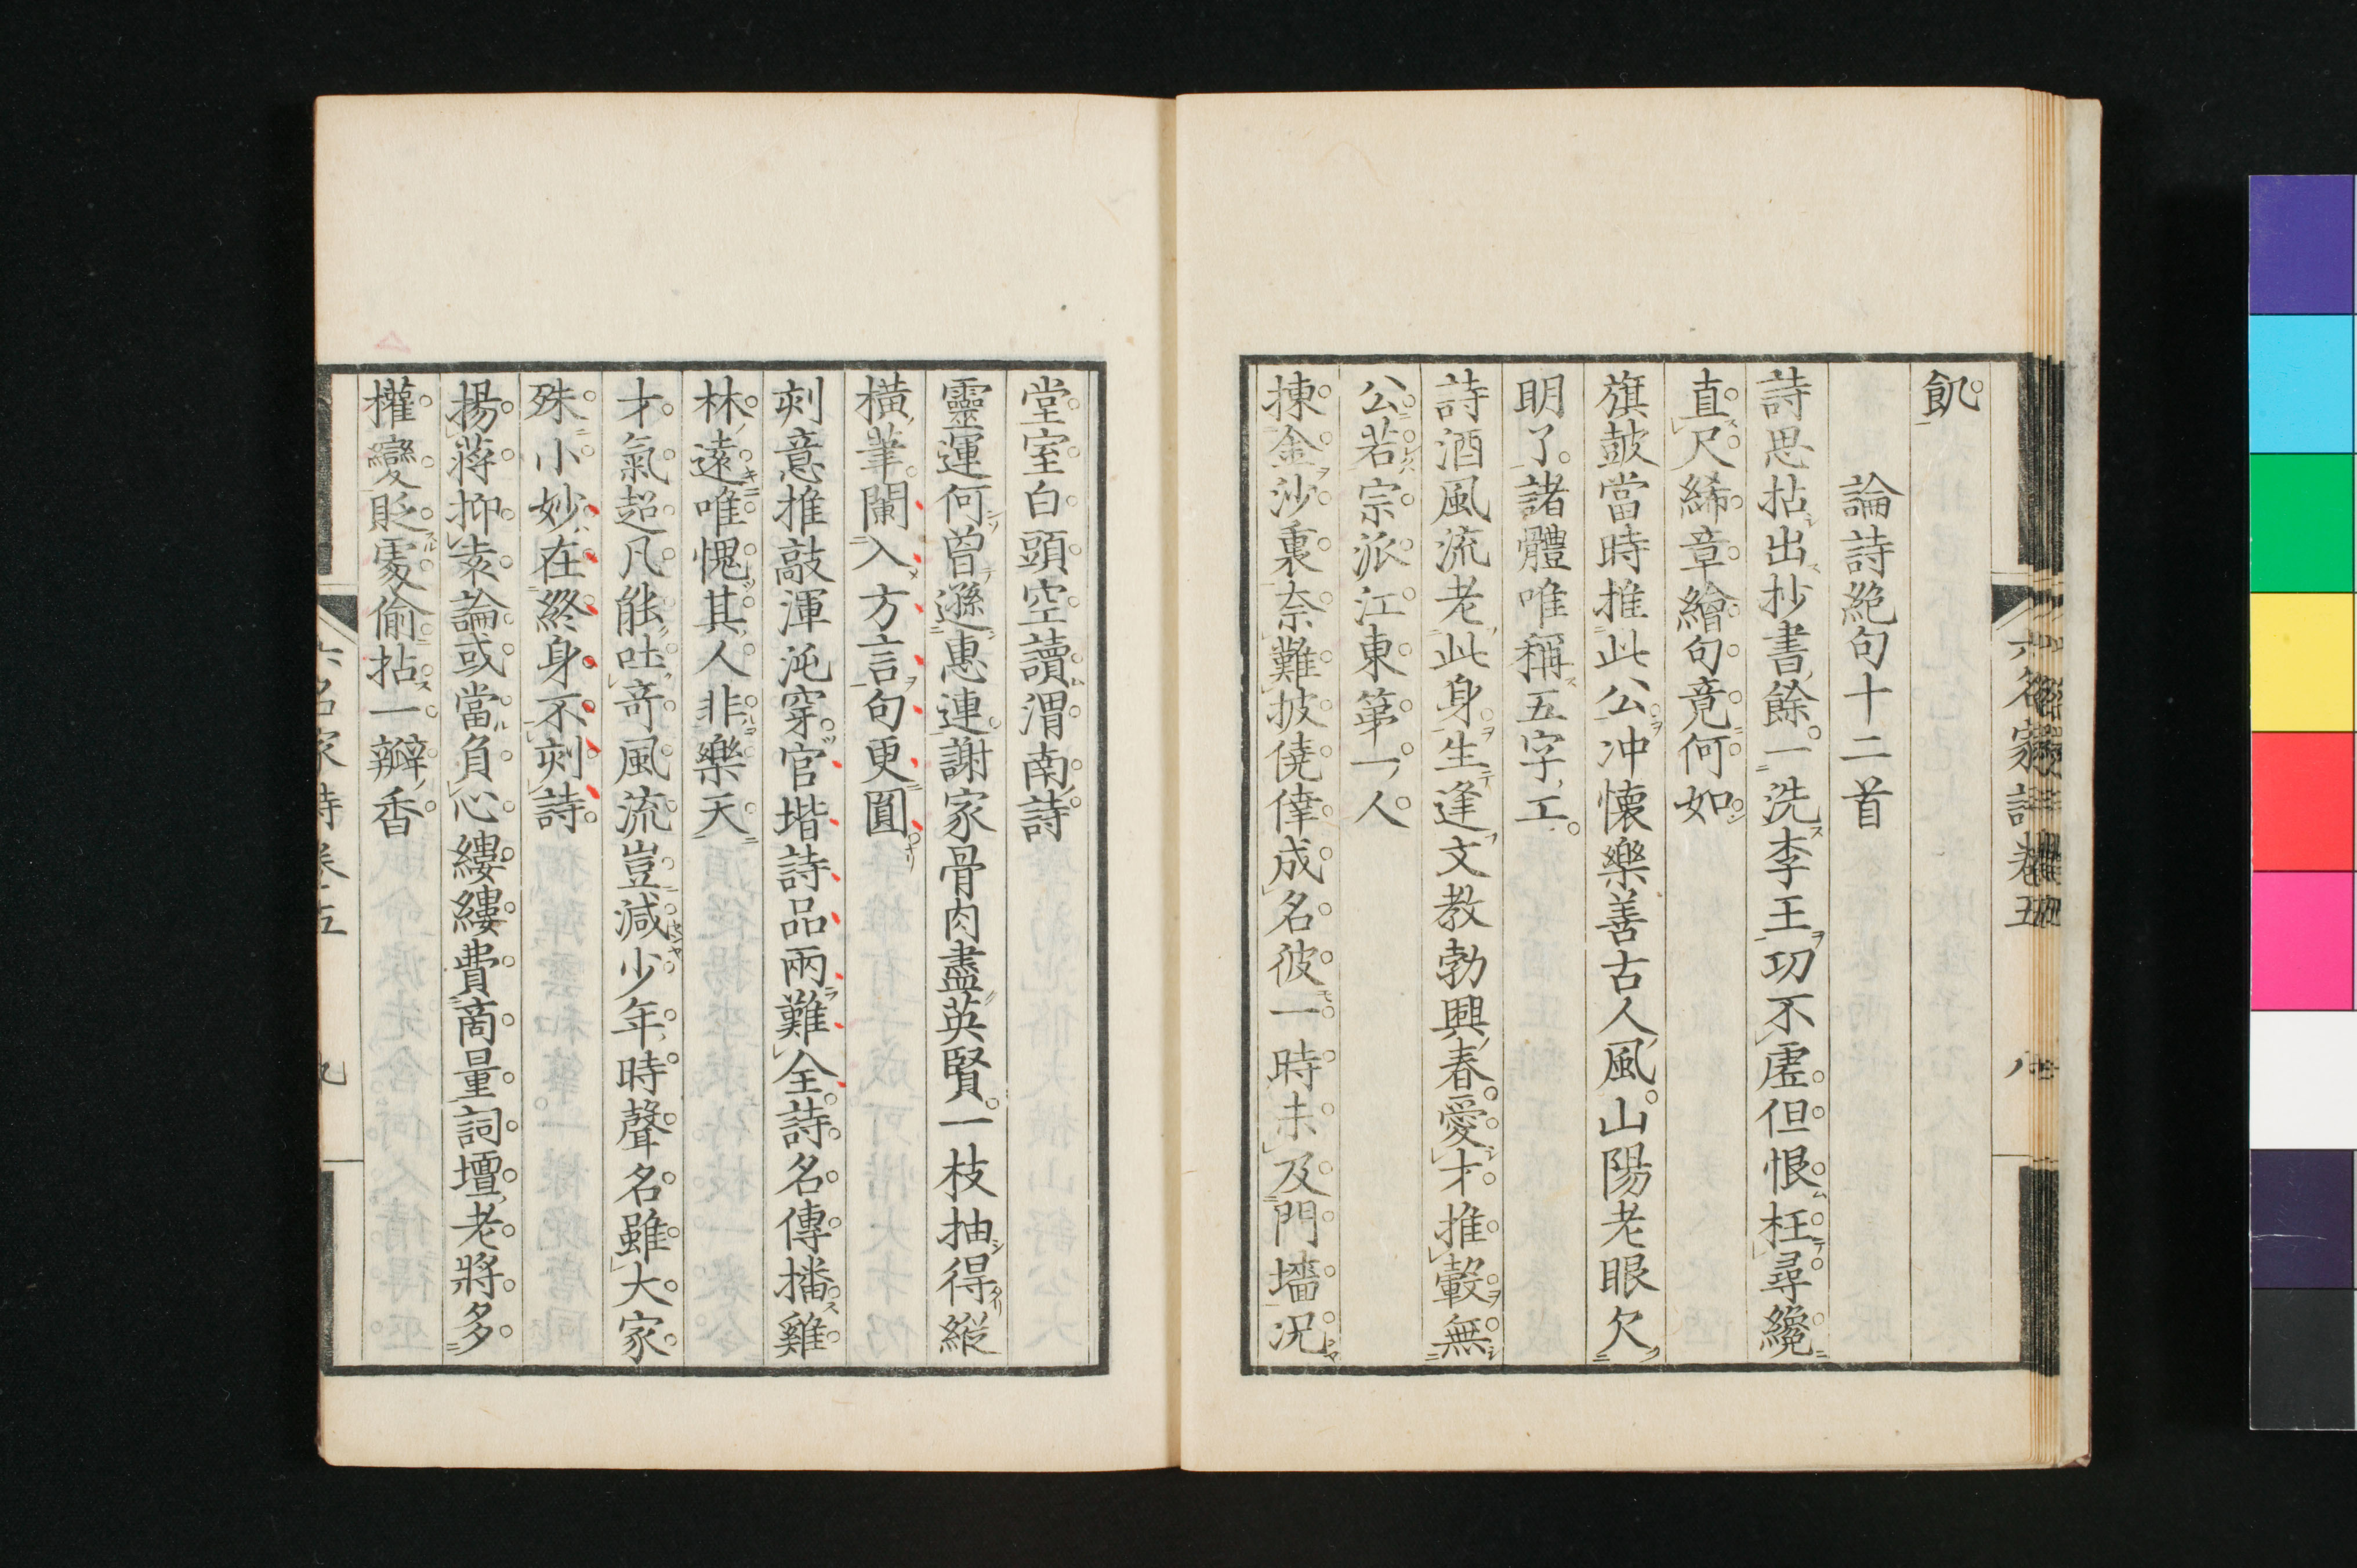 飢
論詩絶句十二首
詩思拈出抄書餘一洗李王功不虚但恨枉尋纔
直尺絺章繪句竟何如
旗鼓當時推此公冲懷樂善古人風山陽老眼欠
明了諸體唯稱五字工
詩酒風流老此身生逢文教勃興春愛才推轂無
公若宗派江東第一人
揀金沙裏奈難披僥倖成名彼一時未及門墻況
堂室白頭空讀渭南詩
靈運何曾遜惠連謝家骨肉盡英賢一枝抽得縦
横筆闌入方言句更圓
刻意推敲渾沌穿官堦詩品兩難全詩名傳播雞
林遠唯愧其人非樂天
才氣超凡能吐竒風流豈減少年時聲名雖大家
殊小妙在終身不刻詩
揚蒋抑袁論或當負心縷縷費商量詞壇老將多
權變貶處偷拈一瓣香
六名家詩卷五 八
六名家詩卷五 九